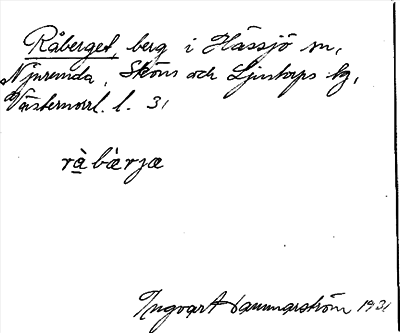 Råberget, berg i Hässjö sn,
Njurunda, Sköns och Ljustorps tg,
Västernorrl. l. 31
rå bærjæ
Ingvart Hammarström 1931